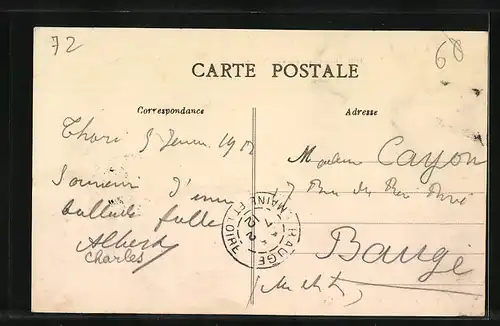 72
60
CARTE POSTALE
Correspondance
Adresse
5 1912
Souvenir d'une
ballade folle
Albert
Charles
Madame Cayon
7 Rue du Roi René
Baugé
(M et L)
BAUGÉ
MAINE ET LOIRE